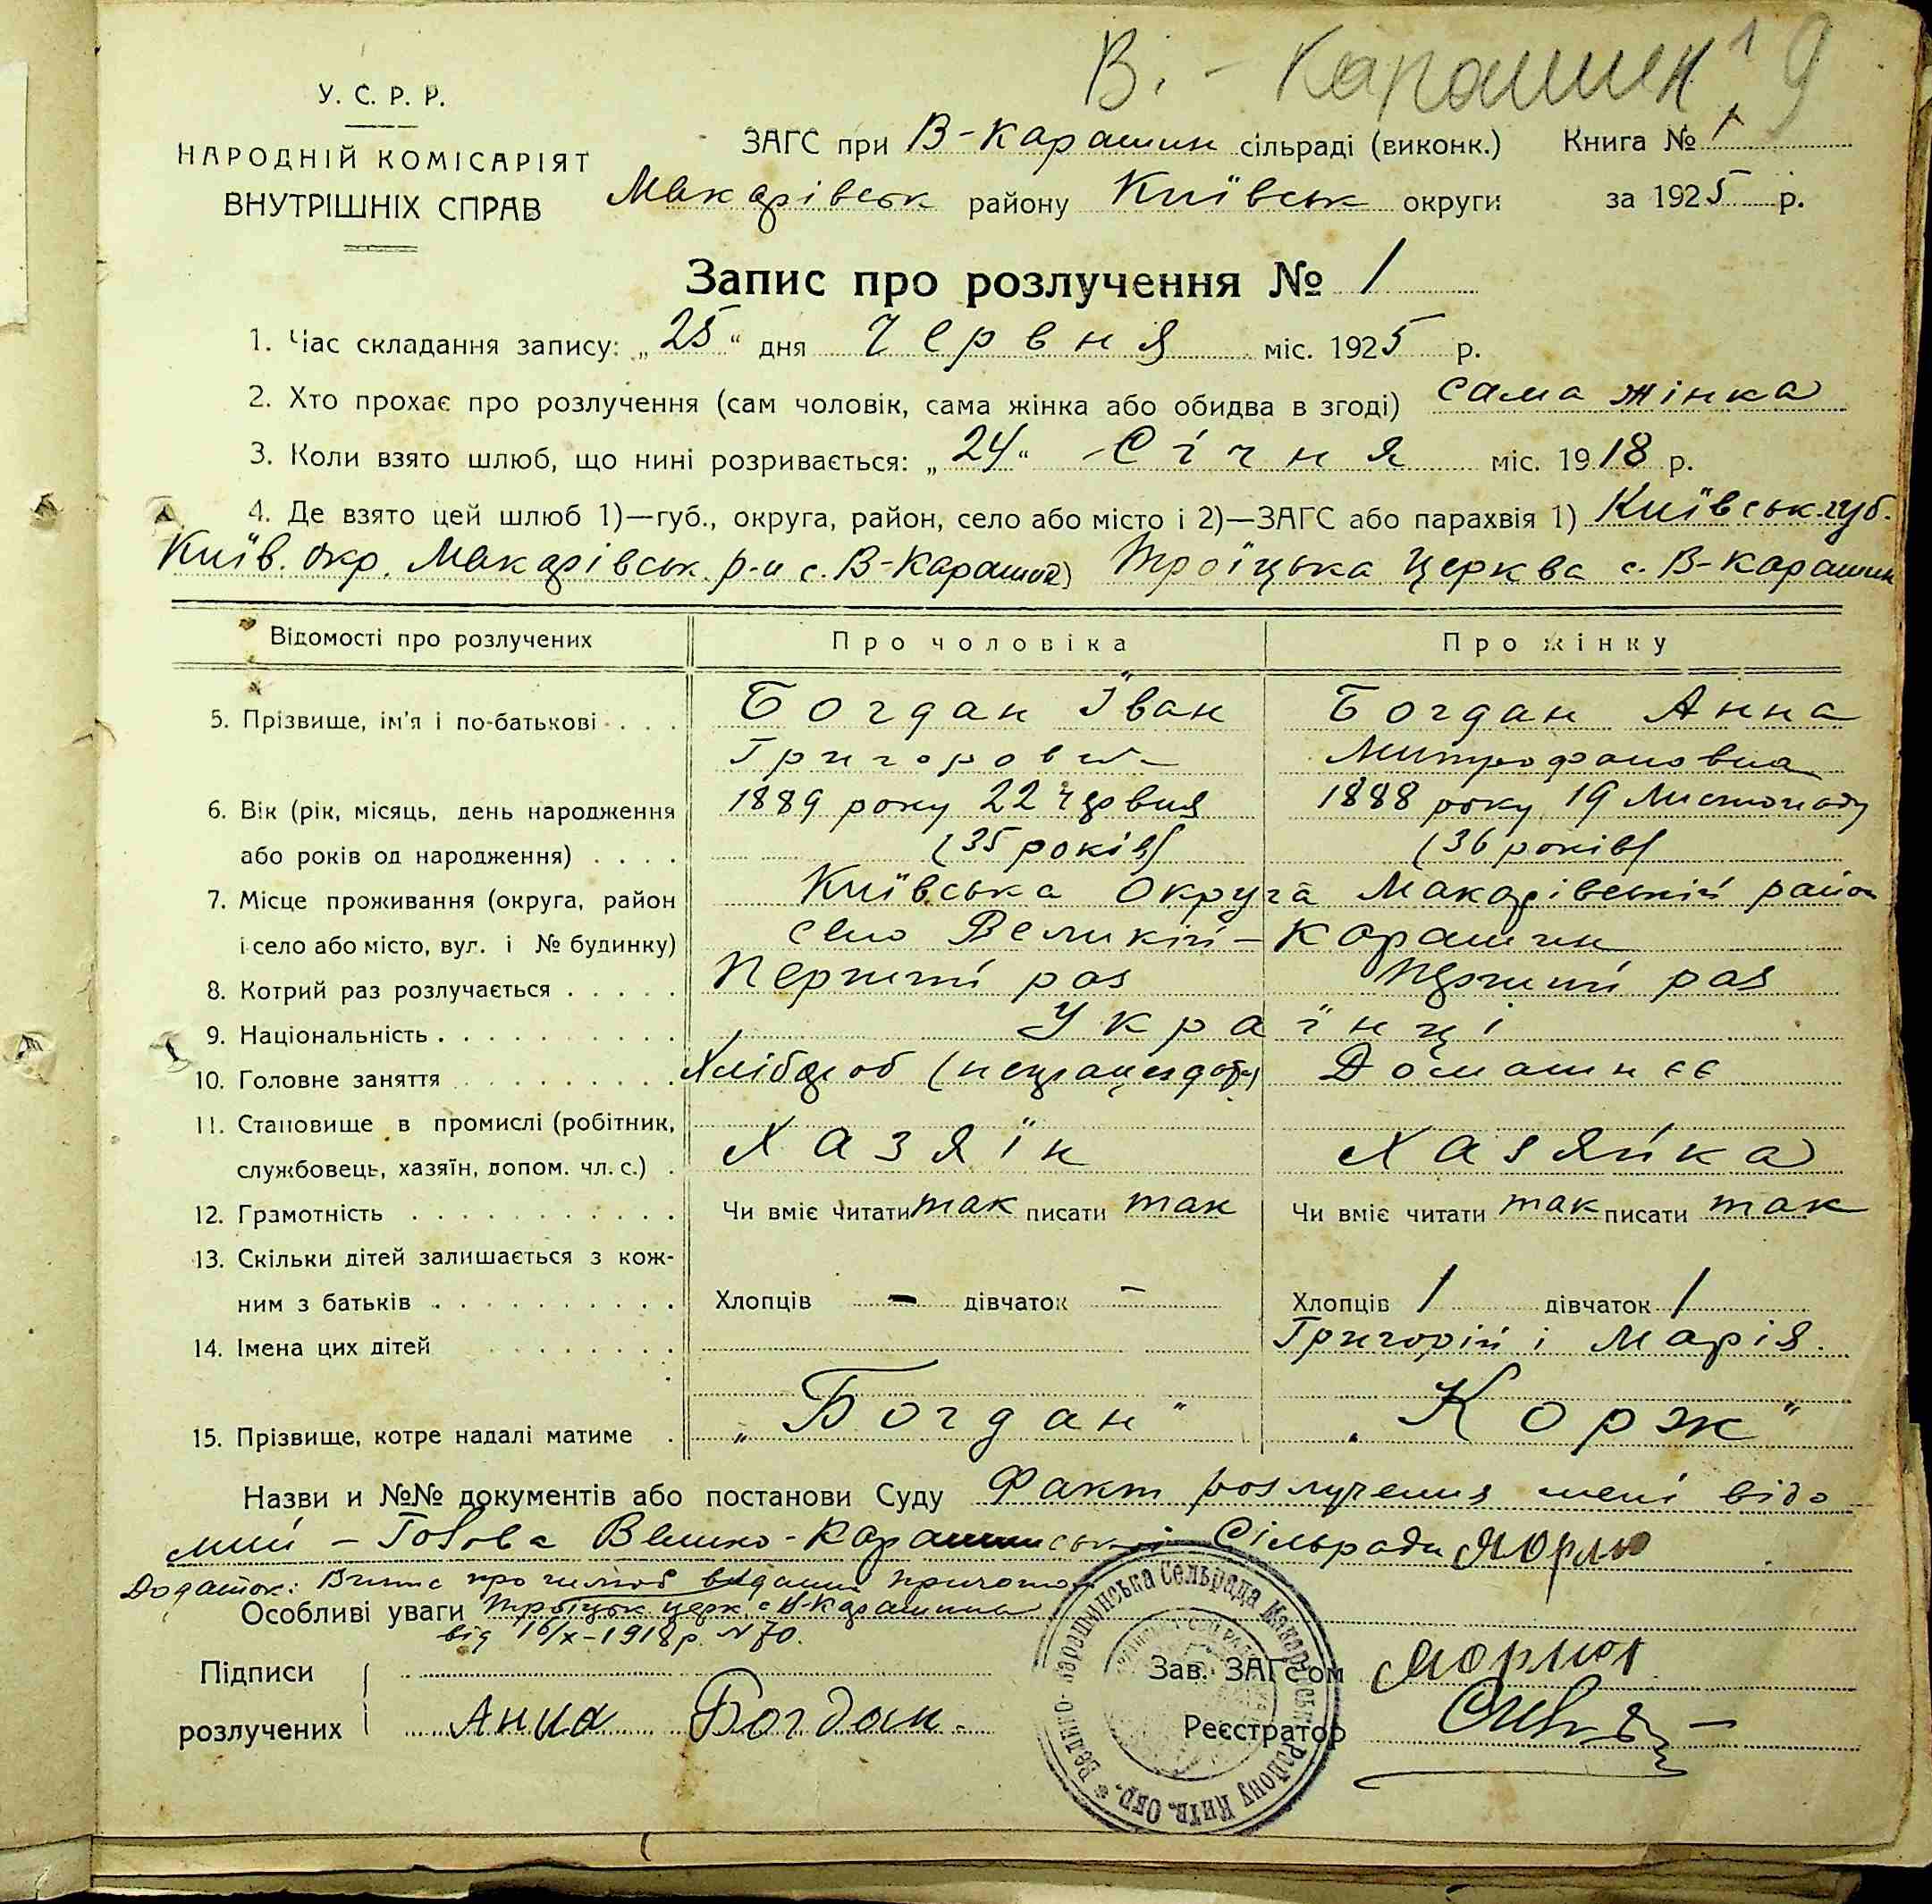 В. - Карашин 1 9
У. С. Р. Р.
НАРОДНІЙ КОМІСАРІЯТ
ВНУТРІШНІХ СПРАВ
ЗАГС при В-Карашин сільраді (виконк.) Книга № 1
Макарівськ району Київськ округи за 1925 р.
Запис про розлучення № 1
1. Час складання запису: „25“ дня Червня міс. 1925 р.
2. Хто прохає про розлучення (сам чоловік, сама жінка або обидва в згоді) сама жінка
3. Коли взято шлюб, що нині розривається: „24“ Січня міс. 1918 р.
4. Де взято цей шлюб 1)—губ., округа, район, село або місто і 2)—ЗАГС або парахвія 1) Київськ. губ.
Київ. окр. Макарівськ. р-н с. В-Карашин 2) Троїцька Церква с. В-Карашин
Відомості про розлучених Про чоловіка Про жінку
5. Прізвище, ім'я і по-батькові Богдан Іван Богдан Анна
Григорович Митрофановна
6. Вік (рік, місяць, день народження 1889 року 22 червня 1888 року 19 Листопаду
або років од народження) (35 років) (36 років)
7. Місце проживання (округа, район Київська Округа Макарівський район
і село або місто, вул. і № будинку) село Великий-Карашин
8. Котрий раз розлучається Перший раз Перший раз
9. Національність Українці
10. Головне заняття Хлібороб Домашнєє
11. Становище в промислі (робітник,
службовець, хазяїн, допом. чл. с.) Хазяїн Хазяйка
12. Грамотність Чи вміє читати так писати так Чи вміє читати так писати так
13. Скільки дітей залишається з кож-
ним з батьків Хлопців - дівчаток - Хлопців 1 дівчаток 1
14. Імена цих дітей Григорій і Марія.
15. Прізвище, котре надалі матиме „Богдан“ „Корж“
Назви и №№ документів або постанови Суду Факт розлучення мені відо
мий - Голова Велико-Карашинської Сільради
Додаток: Витяг про шлюб виданий причтом
Особливі уваги Троїцьк церк. с В-Карашина
від 16/X-1918 р. N 70.
Підписи
розлучених Анна Богдан.
Зав. ЗАГС'ом
Реєстратор
Велико-Карашинська Сельрада Макарівськ Району Київ. Окр.